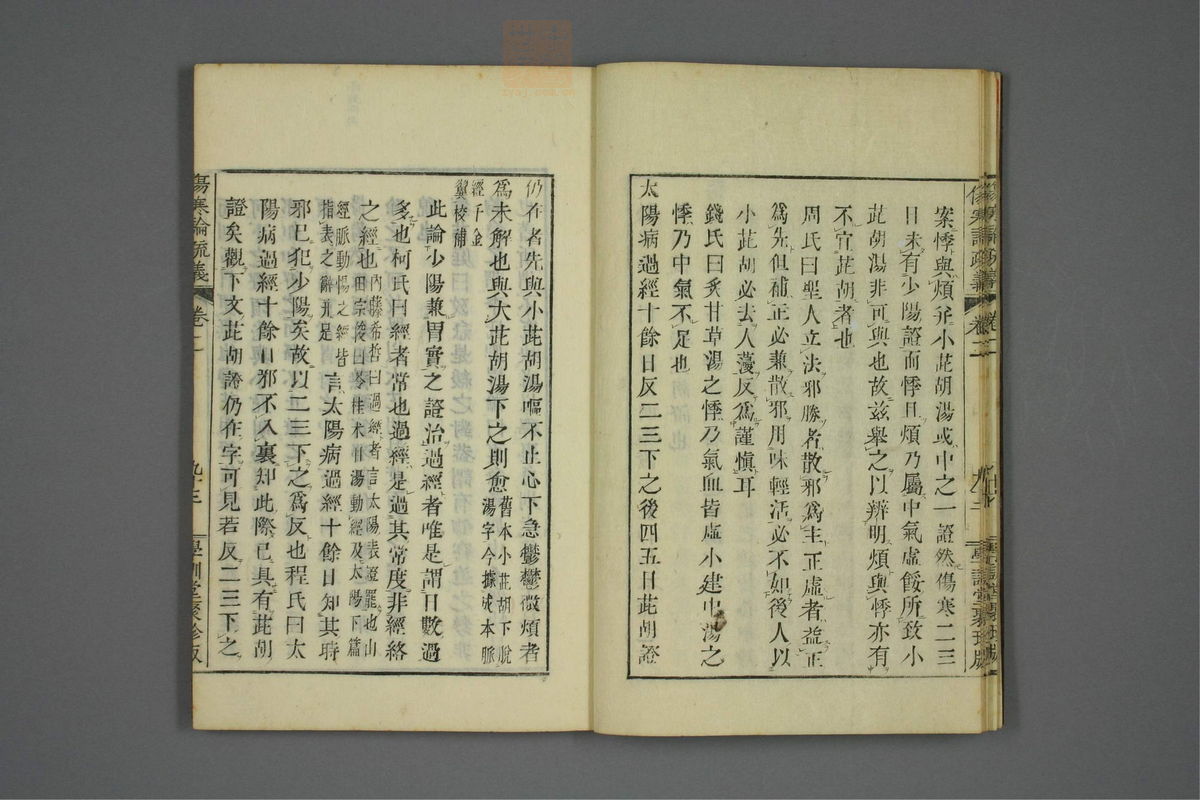 案悸與煩並小茈胡湯或中之一證然傷寒二三
日未有少陽證而悸且煩乃屬中氣虛餒所致小
茈胡湯非可與也故兹舉之以辨明煩與悸亦有
不宜茈胡者也
周氏曰聖人立法邪勝者散邪爲主正虛者益正
爲先但補正必兼散邪用味輕活必不如後人以
小茈胡必去人葠反爲謹愼耳
錢氏曰炙甘草湯之悸乃氣血皆虛小建中湯之
悸乃中氣不足也
太陽病過經十餘日反二三下之後四五日茈胡證
仍在者先與小茈胡湯嘔不止心下急鬱鬱微煩者
爲未解也與大茈胡湯下之則愈舊本小茈胡下脫
湯字今據成本脈
經千金
翼校補
此論少陽兼胃實之證治過經者唯是謂日數過
多也柯氏曰經者常也過經是過其常度非經絡
之經也內藤希哲曰過經者言太陽表證罷也山
田宗俊曰苓桂朮甘湯動經及太陽下篇
經脈動惕之經皆
指表之辭可足
言太陽病過經十餘日知其時
邪已犯少陽矣故以二三下之爲反也程氏曰太
陽病過經十餘日邪不入裏知此際已具有茈胡
證矣觀下文茈胡證仍在字可見若反二三下之
傷寒論疏義
卷二
九十三
學訓堂聚珍版